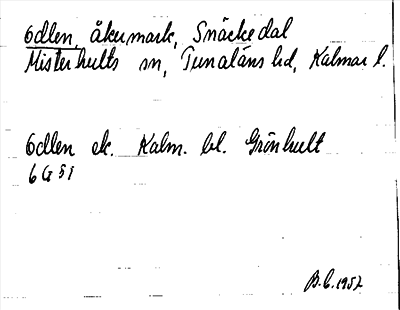 Ödlen, åkermark, Snäckedal
Misterhults sn, Tunaläns hd, Kalmar l.
Ödlen ek. Kalm. bl. Grönhult
6 G 5 i
B.C. 1957